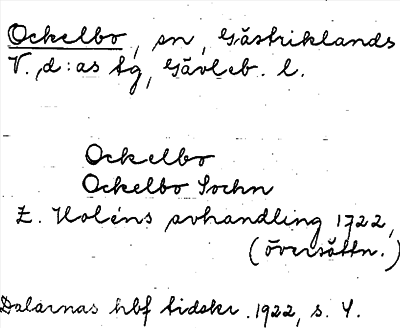 Ockelbo, sn, Gästriklands
V., d:as tg, Gävleb. l.
Ockelbo
Ockelbo Sochn
E. Holéns avhandling 1722,
(översättn.)
Dalarnas hbf tidskr. 1922, s. 4.